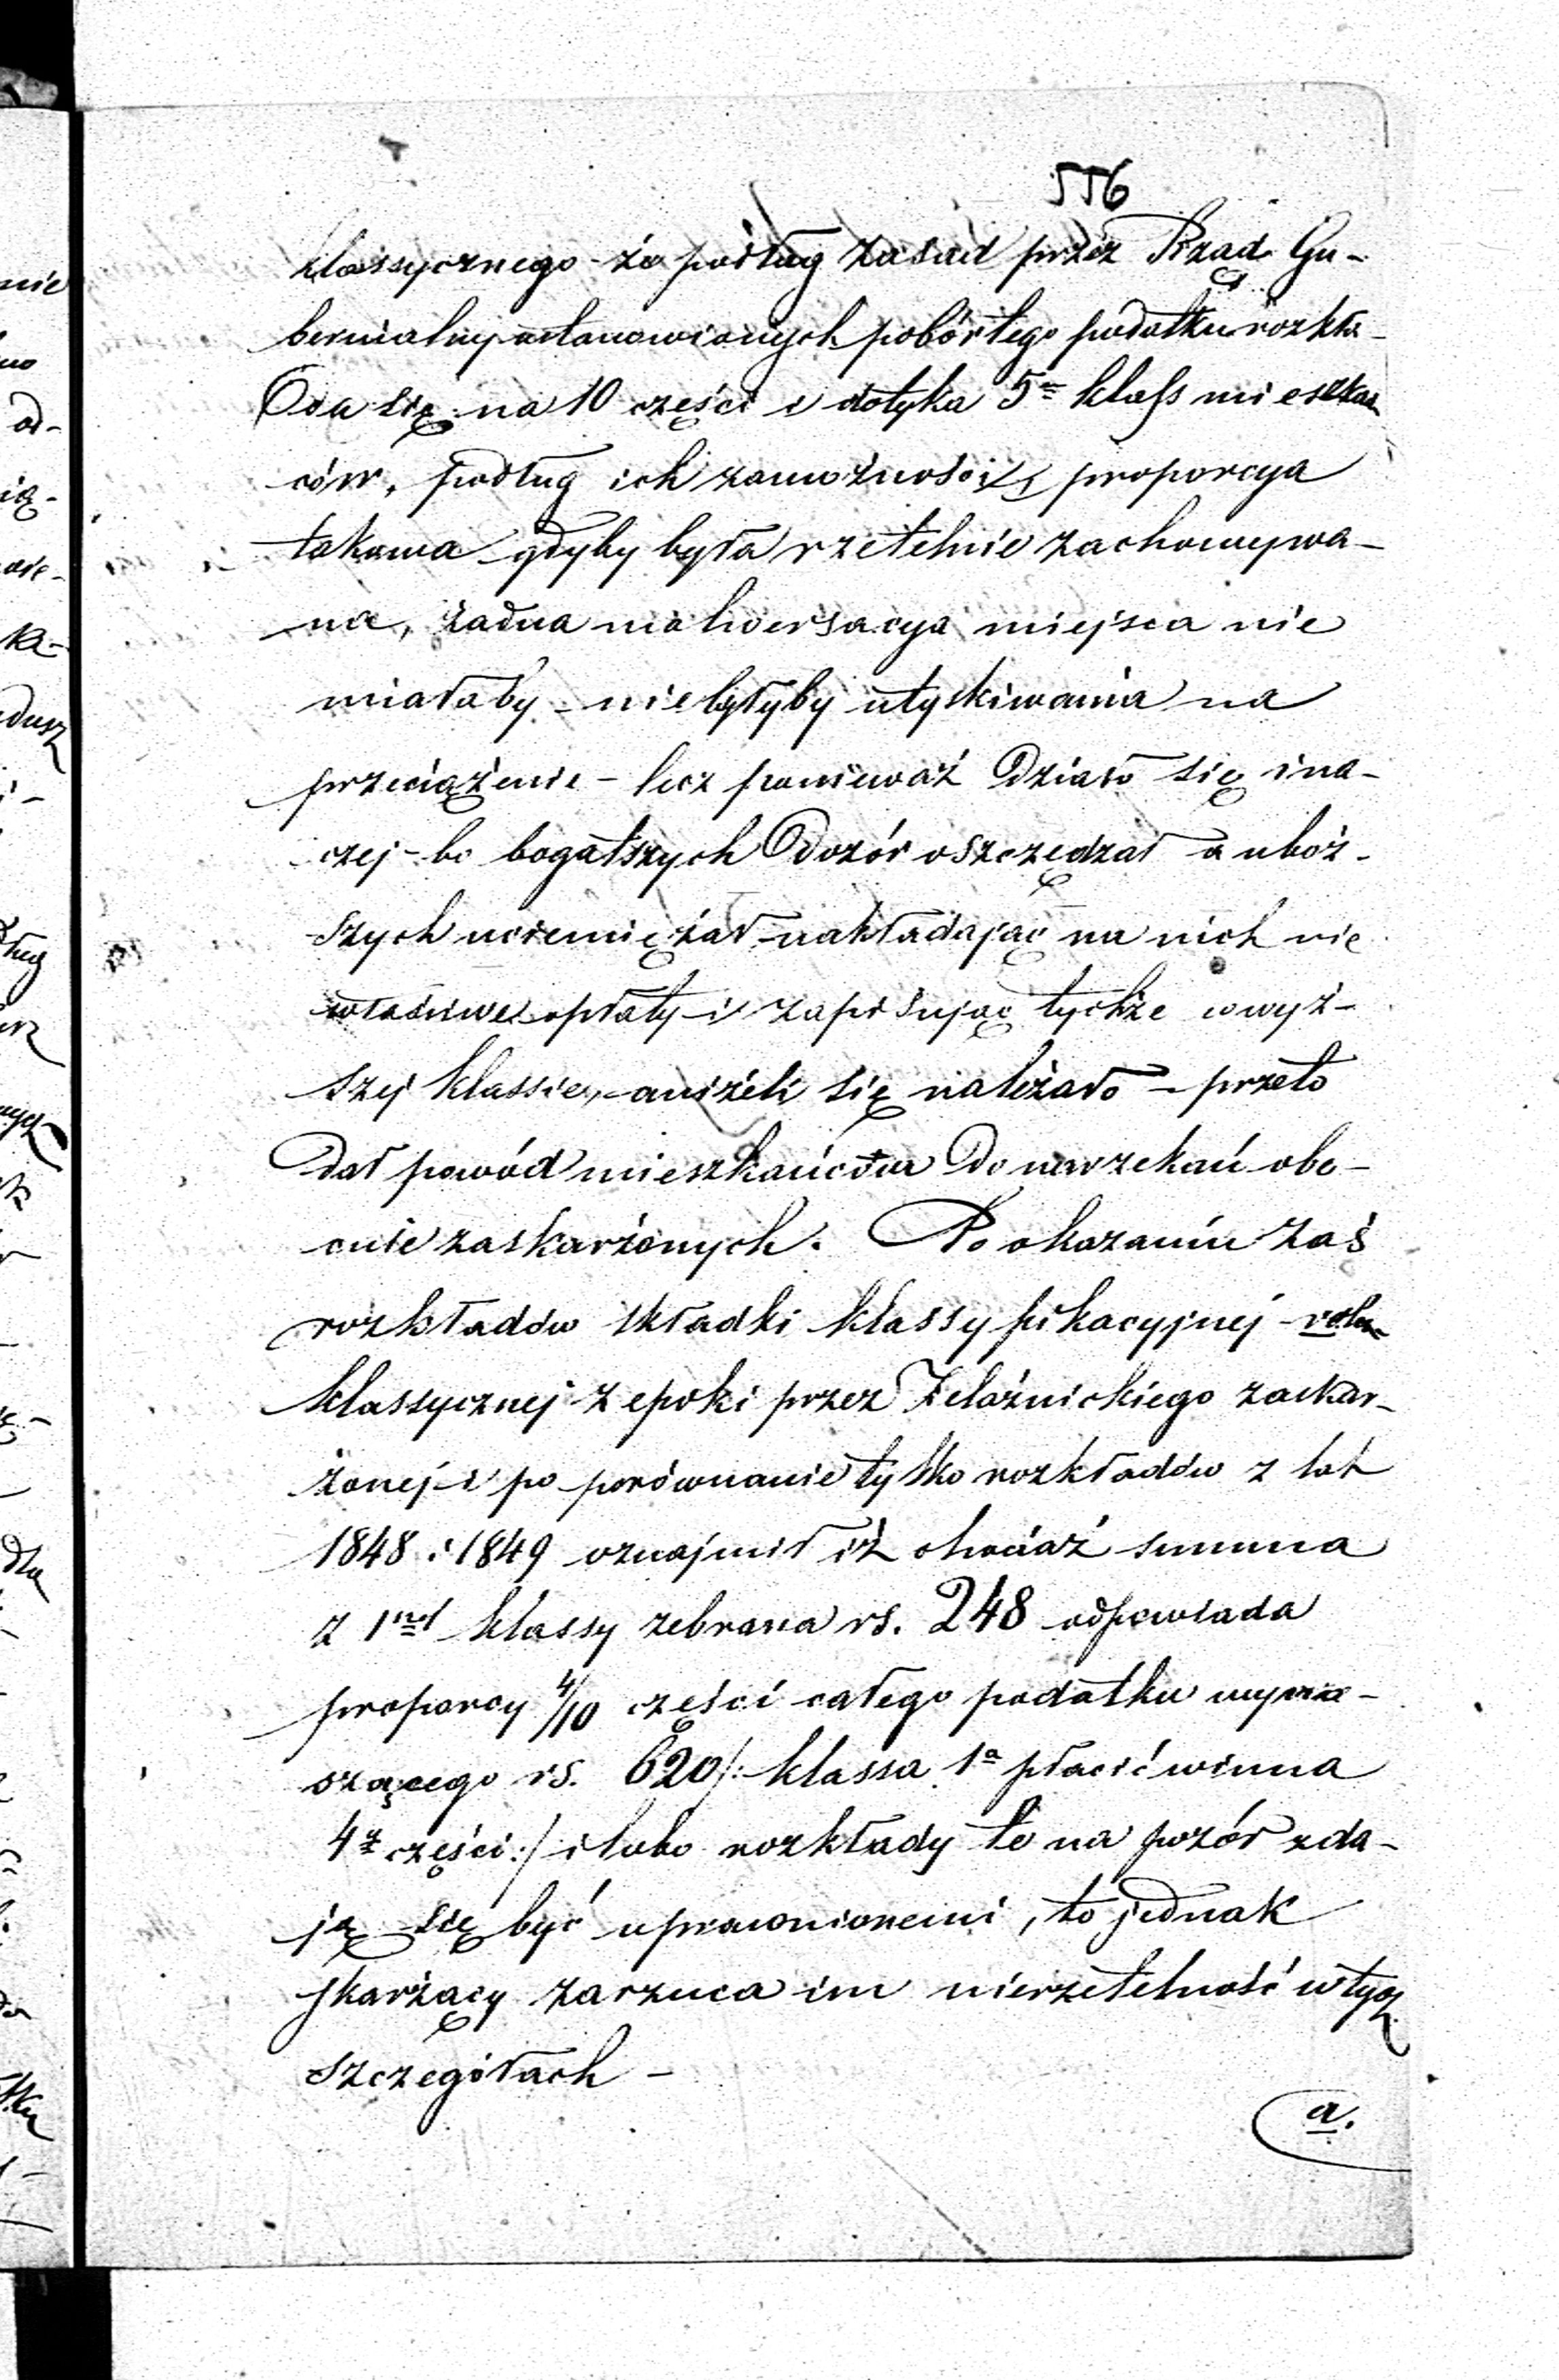 556
klassycznego że podług zasad przez Rząd Gu-
bernialny ustanowionych pobór tego podatku rozkła-
da się na 10 części i dotyka 5m klass mieszkań
ców, podług ich zamożności, proporcya
takowa gdyby była rzetelnie zachowywa-
na, żadna malwersacya miejsca nie
miałaby - nie byłyby utyskiwania na
przeciążenie - lecz ponieważ działo się ina-
czej - bo bogatszych Dozór oszczędzał a uboż-
szych uciemiężał nakładając na nich nie
właściwe opłaty i zapisując tychże w wyż-
szej klassie, aniżeli się należało - przeto
dał powód mieszkańców do narzekań obe-
cnie zaskarżonych. Po okazaniu zaś
rozkładów składki klassyfikacyjnej -
klassycznej z epoki przez Żelaźnickiego zaskar-
żonej i po porównanie tylko rozkładów z lat
1848 i 1849 oznajmił iż chociaż summa
z 1nej klassy zebrana rs. 248 odpowiada
proporcy 4/10 części całego podatku wyno-
szącego rs. 620 /: klassa 1a płacić winna
4y części :/ i lubo rozkłady te na pozór zda-
ją się być uprawnionemi, to jednak
skarżący zarzuca im nierzetelność w tych
szczegółach -
a.